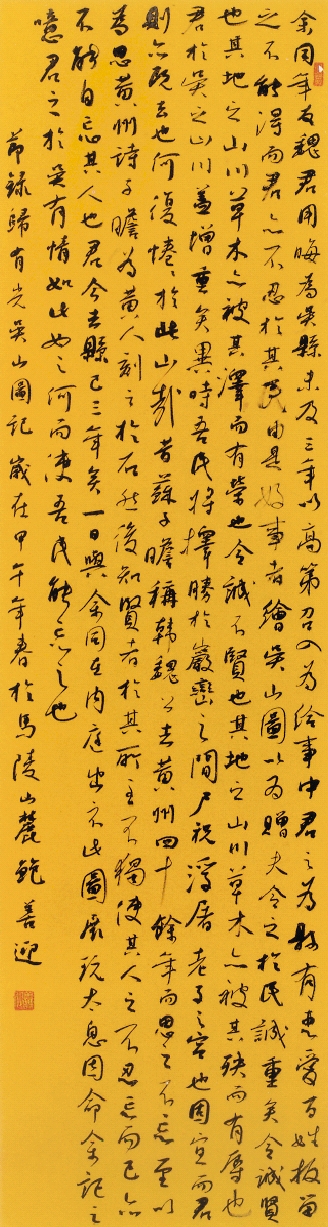 余同年友魏君用晦為吳縣未及三年以高第召入為給事中君之為縣有惠愛百姓扳留
之不能得而君亦不忍於其民由是好事者繪吳山圖以為贈夫令之於民誠重矣令誠賢
也其地之山川草木亦被其澤而有榮也令誠不賢也其地之山川草木亦被其殃而有辱也
君於吳之山川蓋增重矣異時吾民將擇勝於巖巒之間尸祝浮屠老子之宮也固宜而君
則亦既去也何復惓々於此山哉昔蘇子瞻稱韓魏公去黃州四十餘年而思之不忘至以
為思黃州詩子瞻為黃人刻之於石然後知賢者於其所至不獨使其人之不忍忘而已亦
不能自忘其人也君今去縣已三年矣一日與余同在內庭出示此圖展玩太息因命余記之
噫君之於吳有情如此如之何而使吾民能忘之也
節錄歸有光吳山圖記歲在甲午年春於馬陵山麓鮑善迎